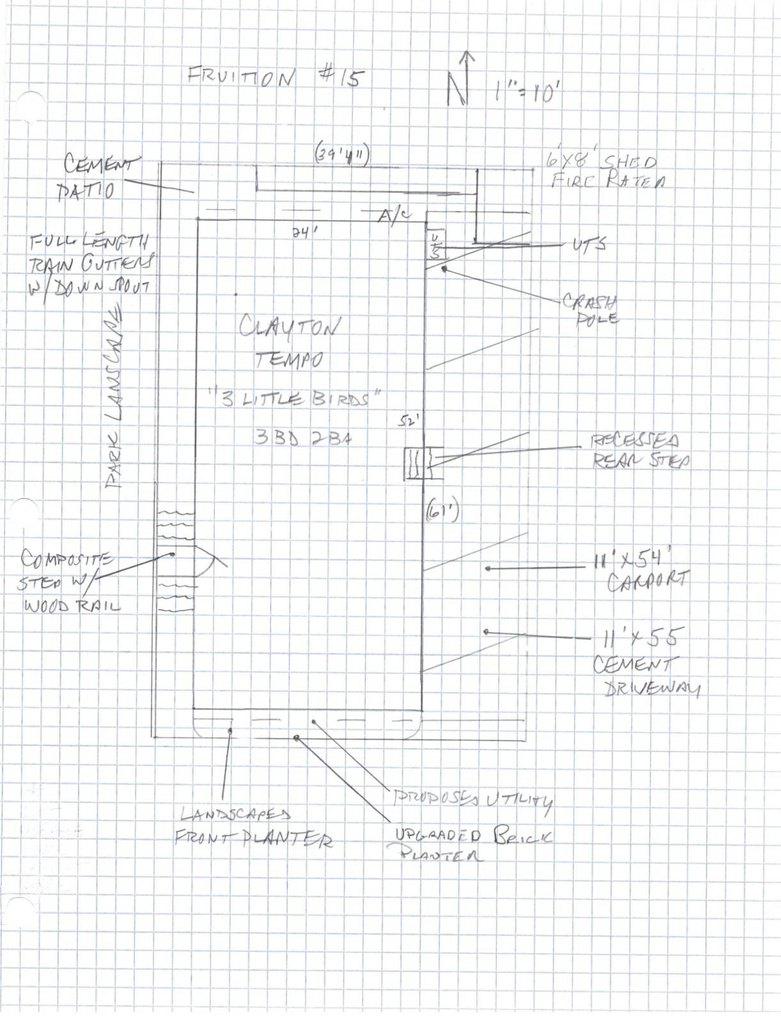 FRUITION #15
N
1"=10'
(39'4")
6'X8' SHED
FIRE RATED
CEMENT
PATIO
A/C
24'
U
S
UTS
FULL LENGTH
RAIN GUTTERS
W/DOWN SPOUT
CRASH
POLE
CLAYTON
TEMPO
"3 LITTLE BIRDS"
3BD 2BA
PARK LANSCAPE
52'
RECESSED
REAR STEP
(61')
COMPOSITE
STEP W/
WOOD RAIL
11'X54'
CARPORT
11'X55
CEMENT
DRIVEWAY
PROPOSED UTILITY
LANDSCAPED
FRONT PLANTER
UPGRADED BRICK
PLANTER